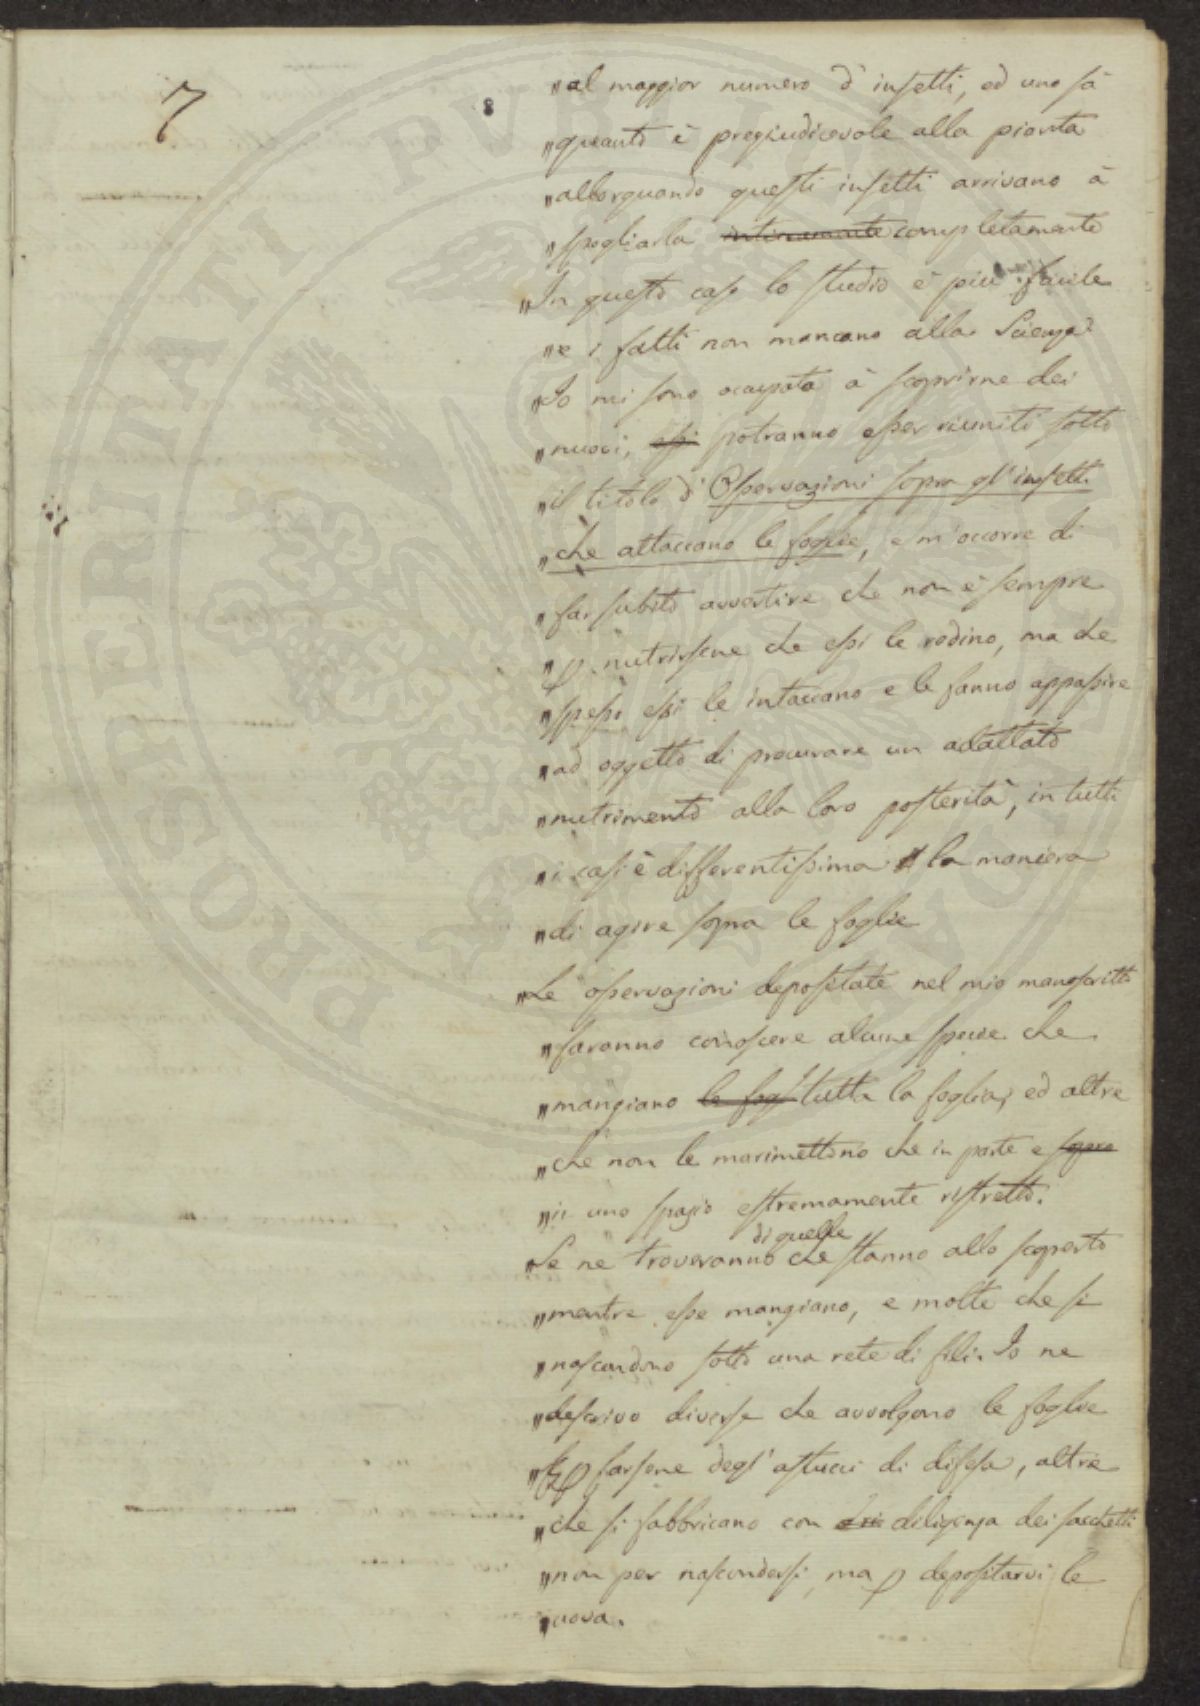 7
8
„al maggior numero d'insetti, ed uno sà
„quanto è pregiudicevole alla pianta
„allorquando questi insetti arrivano à
„spogliarla intieramente completamente
„In questo caso lo studio è più facile
„e i fatti non mancano alla Scienza
„Io mi sono occupato à scoprirne dei
„nuovi, essi potranno esser riuniti sotto
„il titolo d'Osservazioni sopra gl'insetti
„che attaccano le foglie, e m'occorre di
„far subito avvertire che non è sempre
„p nutrirsene che essi le rodino, ma che
„spesso essi le intaccano e le fanno appassire
„ad oggetto di procurare un adattato
„nutrimento alla loro posterità, in tutti
„i casi è differentissima la maniera
„di agire sopra le foglie
„Le osservazioni depositate nel mio manoscritto
„faranno conoscere alcune specie che
„mangiano le fogl tutta la foglia, ed altre
„che non le manimettono che in parte e sopra
„in uno spazio estremamente ristretto.
di quelle
„Se ne troveranno che stanno allo scoperto
„mentre esse mangiano, e molte che si
„nascondono sotto una rete di fili. Io ne
„descrivo diverse che avvolgono le foglie
„p farsene degl'astucci di difesa, altre
„che si fabbricano con diligenza dei sacchetti
„non per nascondersi, ma p depositarvi le
„uova.
PROSPERITATI PVBLICAE AVGENDAE